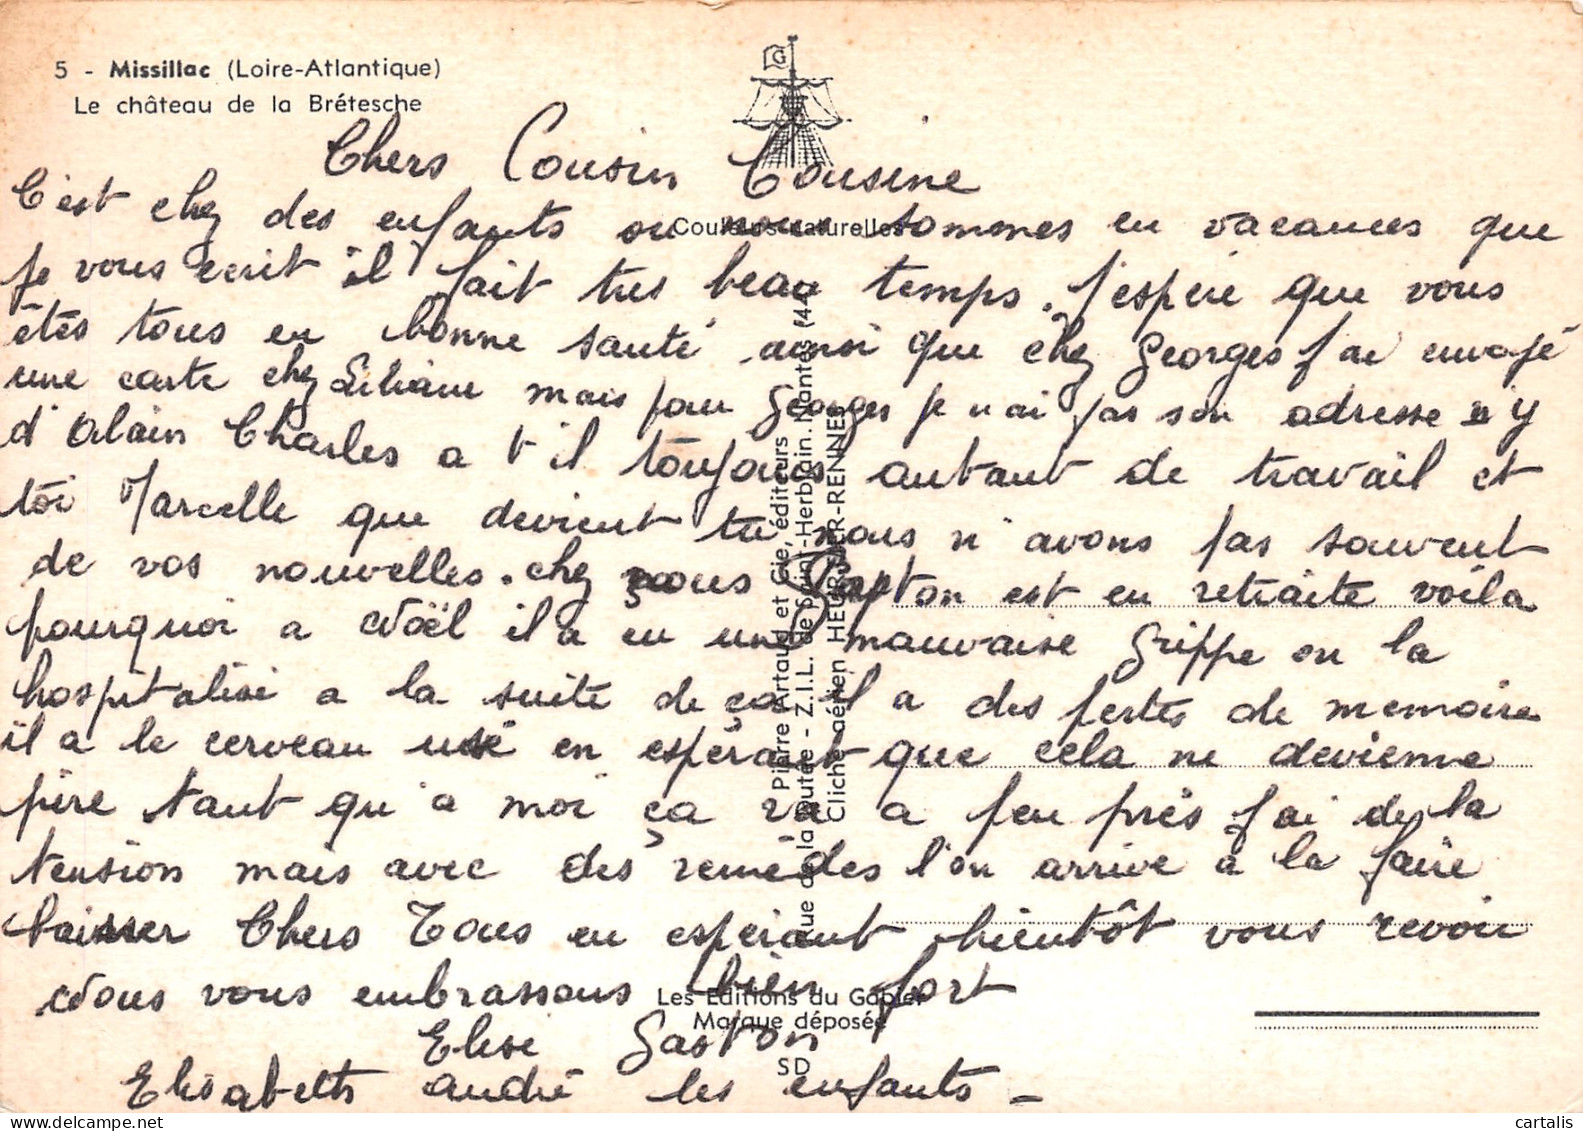 5 - Missillac (Loire-Atlantique)
Le château de la Brétesche
G
Chers Cousin Cousine
C'est chez des enfants ou nous sommes en vacances que
Couleurs naturelles
je vous ecrit il fait tres beau temps. j'espere que vous
êtes tous en bonne santé ainsi que chez Georges j'ai envoyé
une carte chez Liliane mais pour Georges je n'ai pas son adresse n'y
d'Alain Charles a t'il toujours autant de travail et
toi Marcelle que devient tu nous n'avons pas souvent
de vos nouvelles. chez nous Gaston est en retraite voila
pourquoi a Noël il a eu une mauvaise Grippe on la
hospitalisé a la suite de ça il a des pertes de memoire
il a le cerveau usé en espérant que cela ne devienne
pire tant qu'a moi ça va a peu près j'ai de la
tension mais avec des remèdes l'on arrive à la faire
baisser Chers Tous en esperant bientôt vous revoir
Nous vous embrassons bien fort
Elise Gaston
Elisabeth andré les enfants -
Pierre Artaud et Cie, éditeurs
rue de la Loutée - Z.I.L. de Saint-Herblain. Nantes (44)
Cliché aérien HEURTIER-RENNES
Les Editions du Gabier
Marque déposée
SD
cartalis